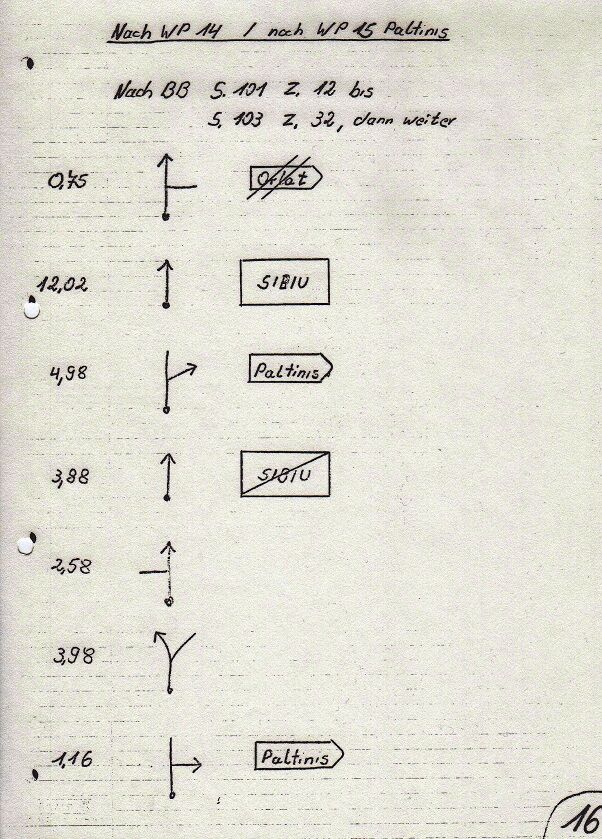 Nach WP 14 / nach WP 15 Paltinis
Nach BB S. 101 Z. 12 bis
S. 103 Z. 32, dann weiter
0,75 Orlat
12,02 SIBIU
4,98 Paltinis
3,88 SIBIU
2,58
3,98
1,16 Paltinis
16